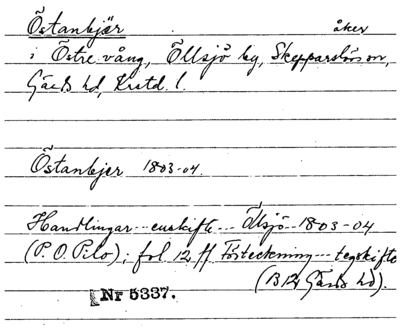 Östankjär åker
i Östre vång, Öllsjö by, Skepparslövs sn,
Gärds hd, Krstd. l.
Östankjer 1803-04.
Handlingar---enskifte--- Öllsjö--1803-04
(P. O. Pilo); fol 12 ff Förteckning---tegskifte
(B 12 Gärds hd).
Nr 5337.